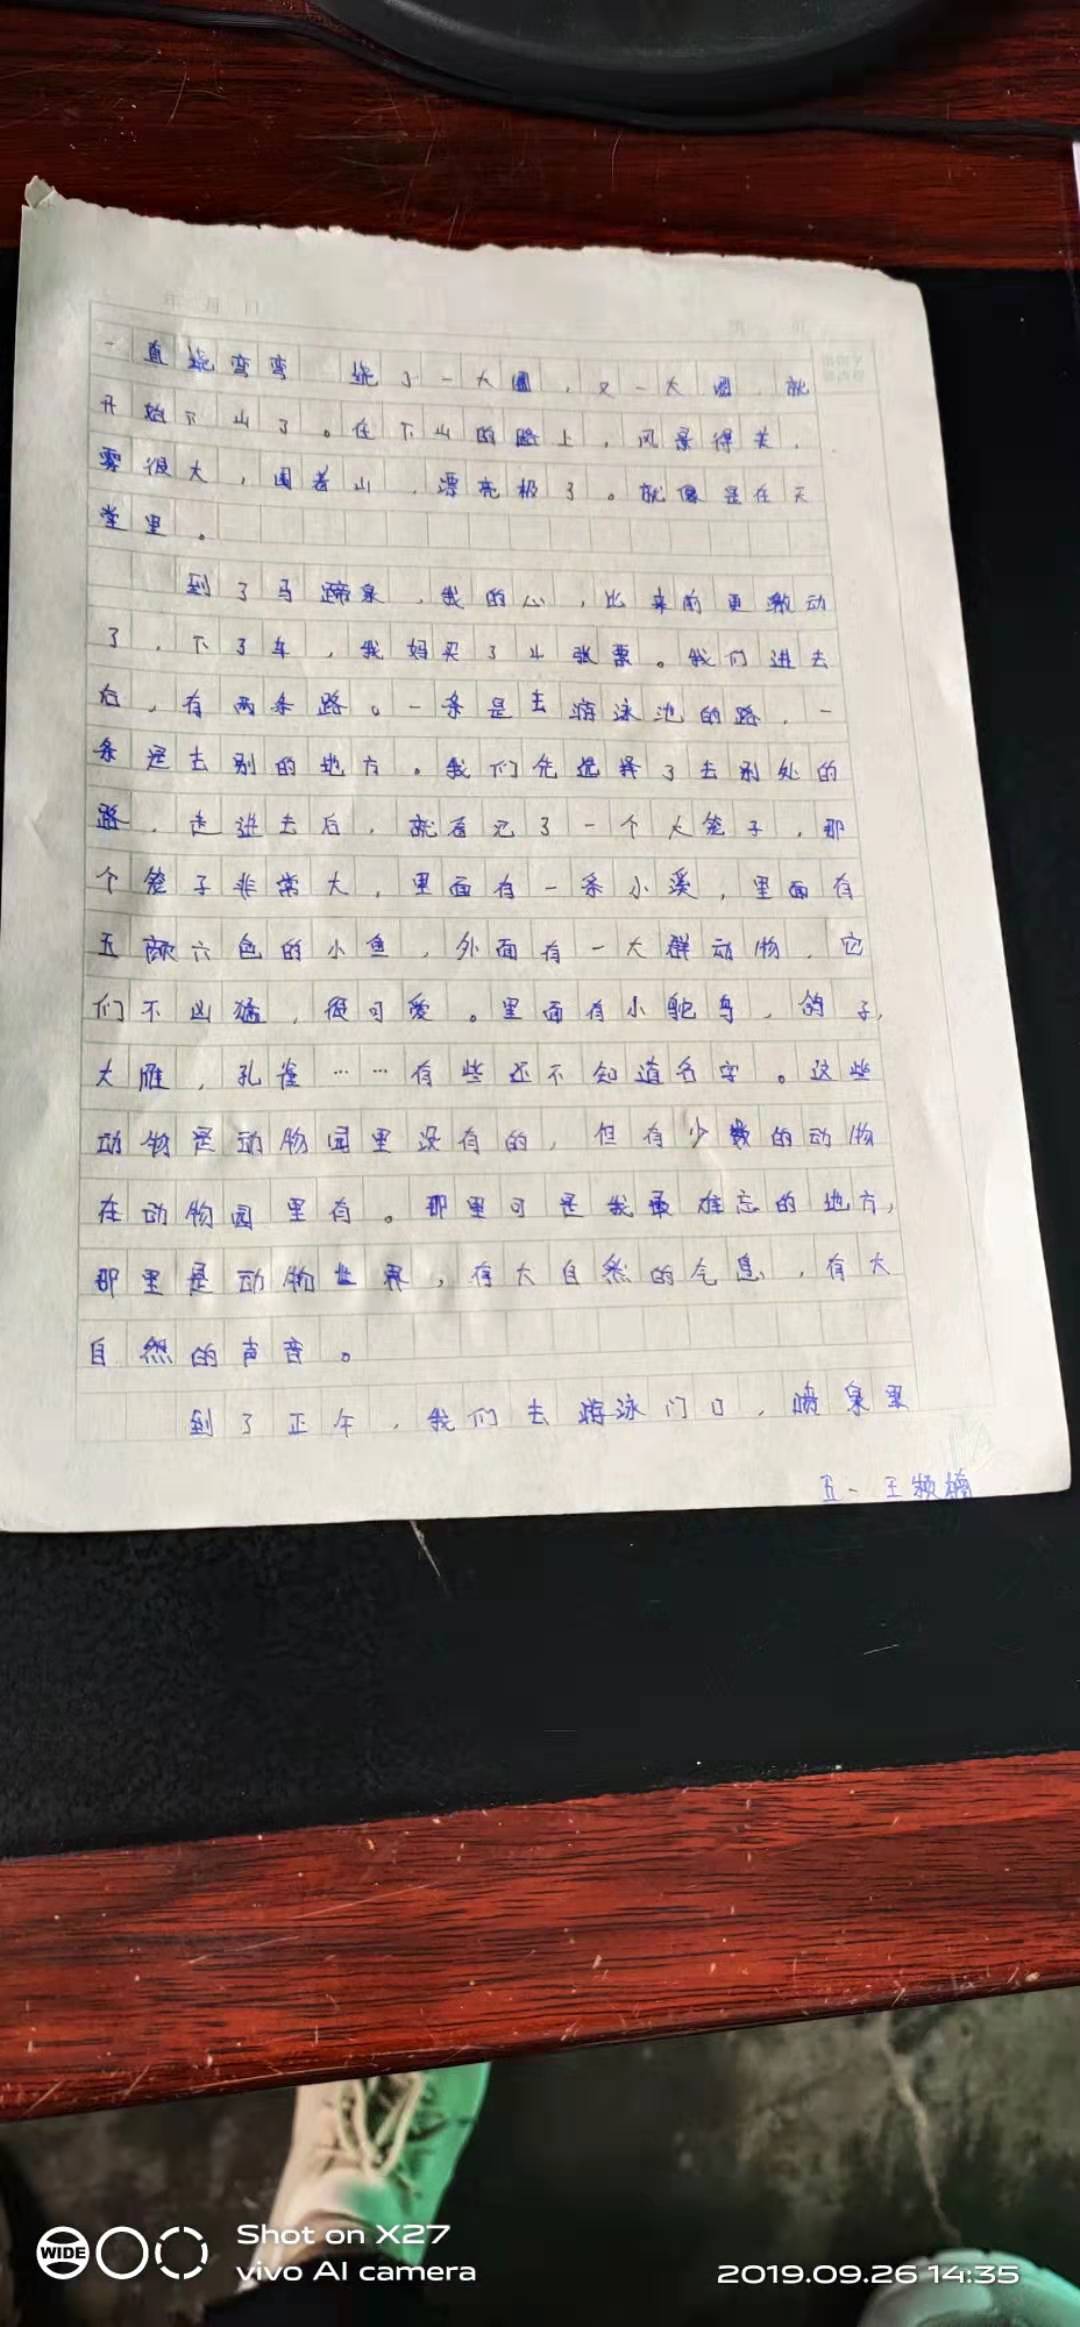 一直绕弯弯 绕了一大圈，又一大圈，就
开始下山了。在下山的路上，风景得美，
雾很大，围着山，漂亮极了。就像是在天
堂里。
到了马蹄泉，我的心，比来前更激动
了，下了车，我妈买了4张票。我们进去
后，有两条路。一条是去游泳池的路，一
条是去别的地方。我们先选择了去别处的
路，走进去后，就看见了一个大笼子，那
个笼子非常大，里面有一条小溪，里面有
五颜六色的小鱼，外面有一大群动物，它
们不凶猛，很可爱。里面有小鸵鸟，鸽子，
大雁，孔雀……有些还不知道名字。这些
动物是动物园里没有的，但有少数的动物
在动物园里有。那里可是我最难忘的地方，
那里是动物世界，有大自然的气息，有大
自然的声音。
到了正午，我们去游泳门口，喷泉里
五一 王颖楠
WIDE
Shot on X27
vivo AI camera
2019.09.26 14:35